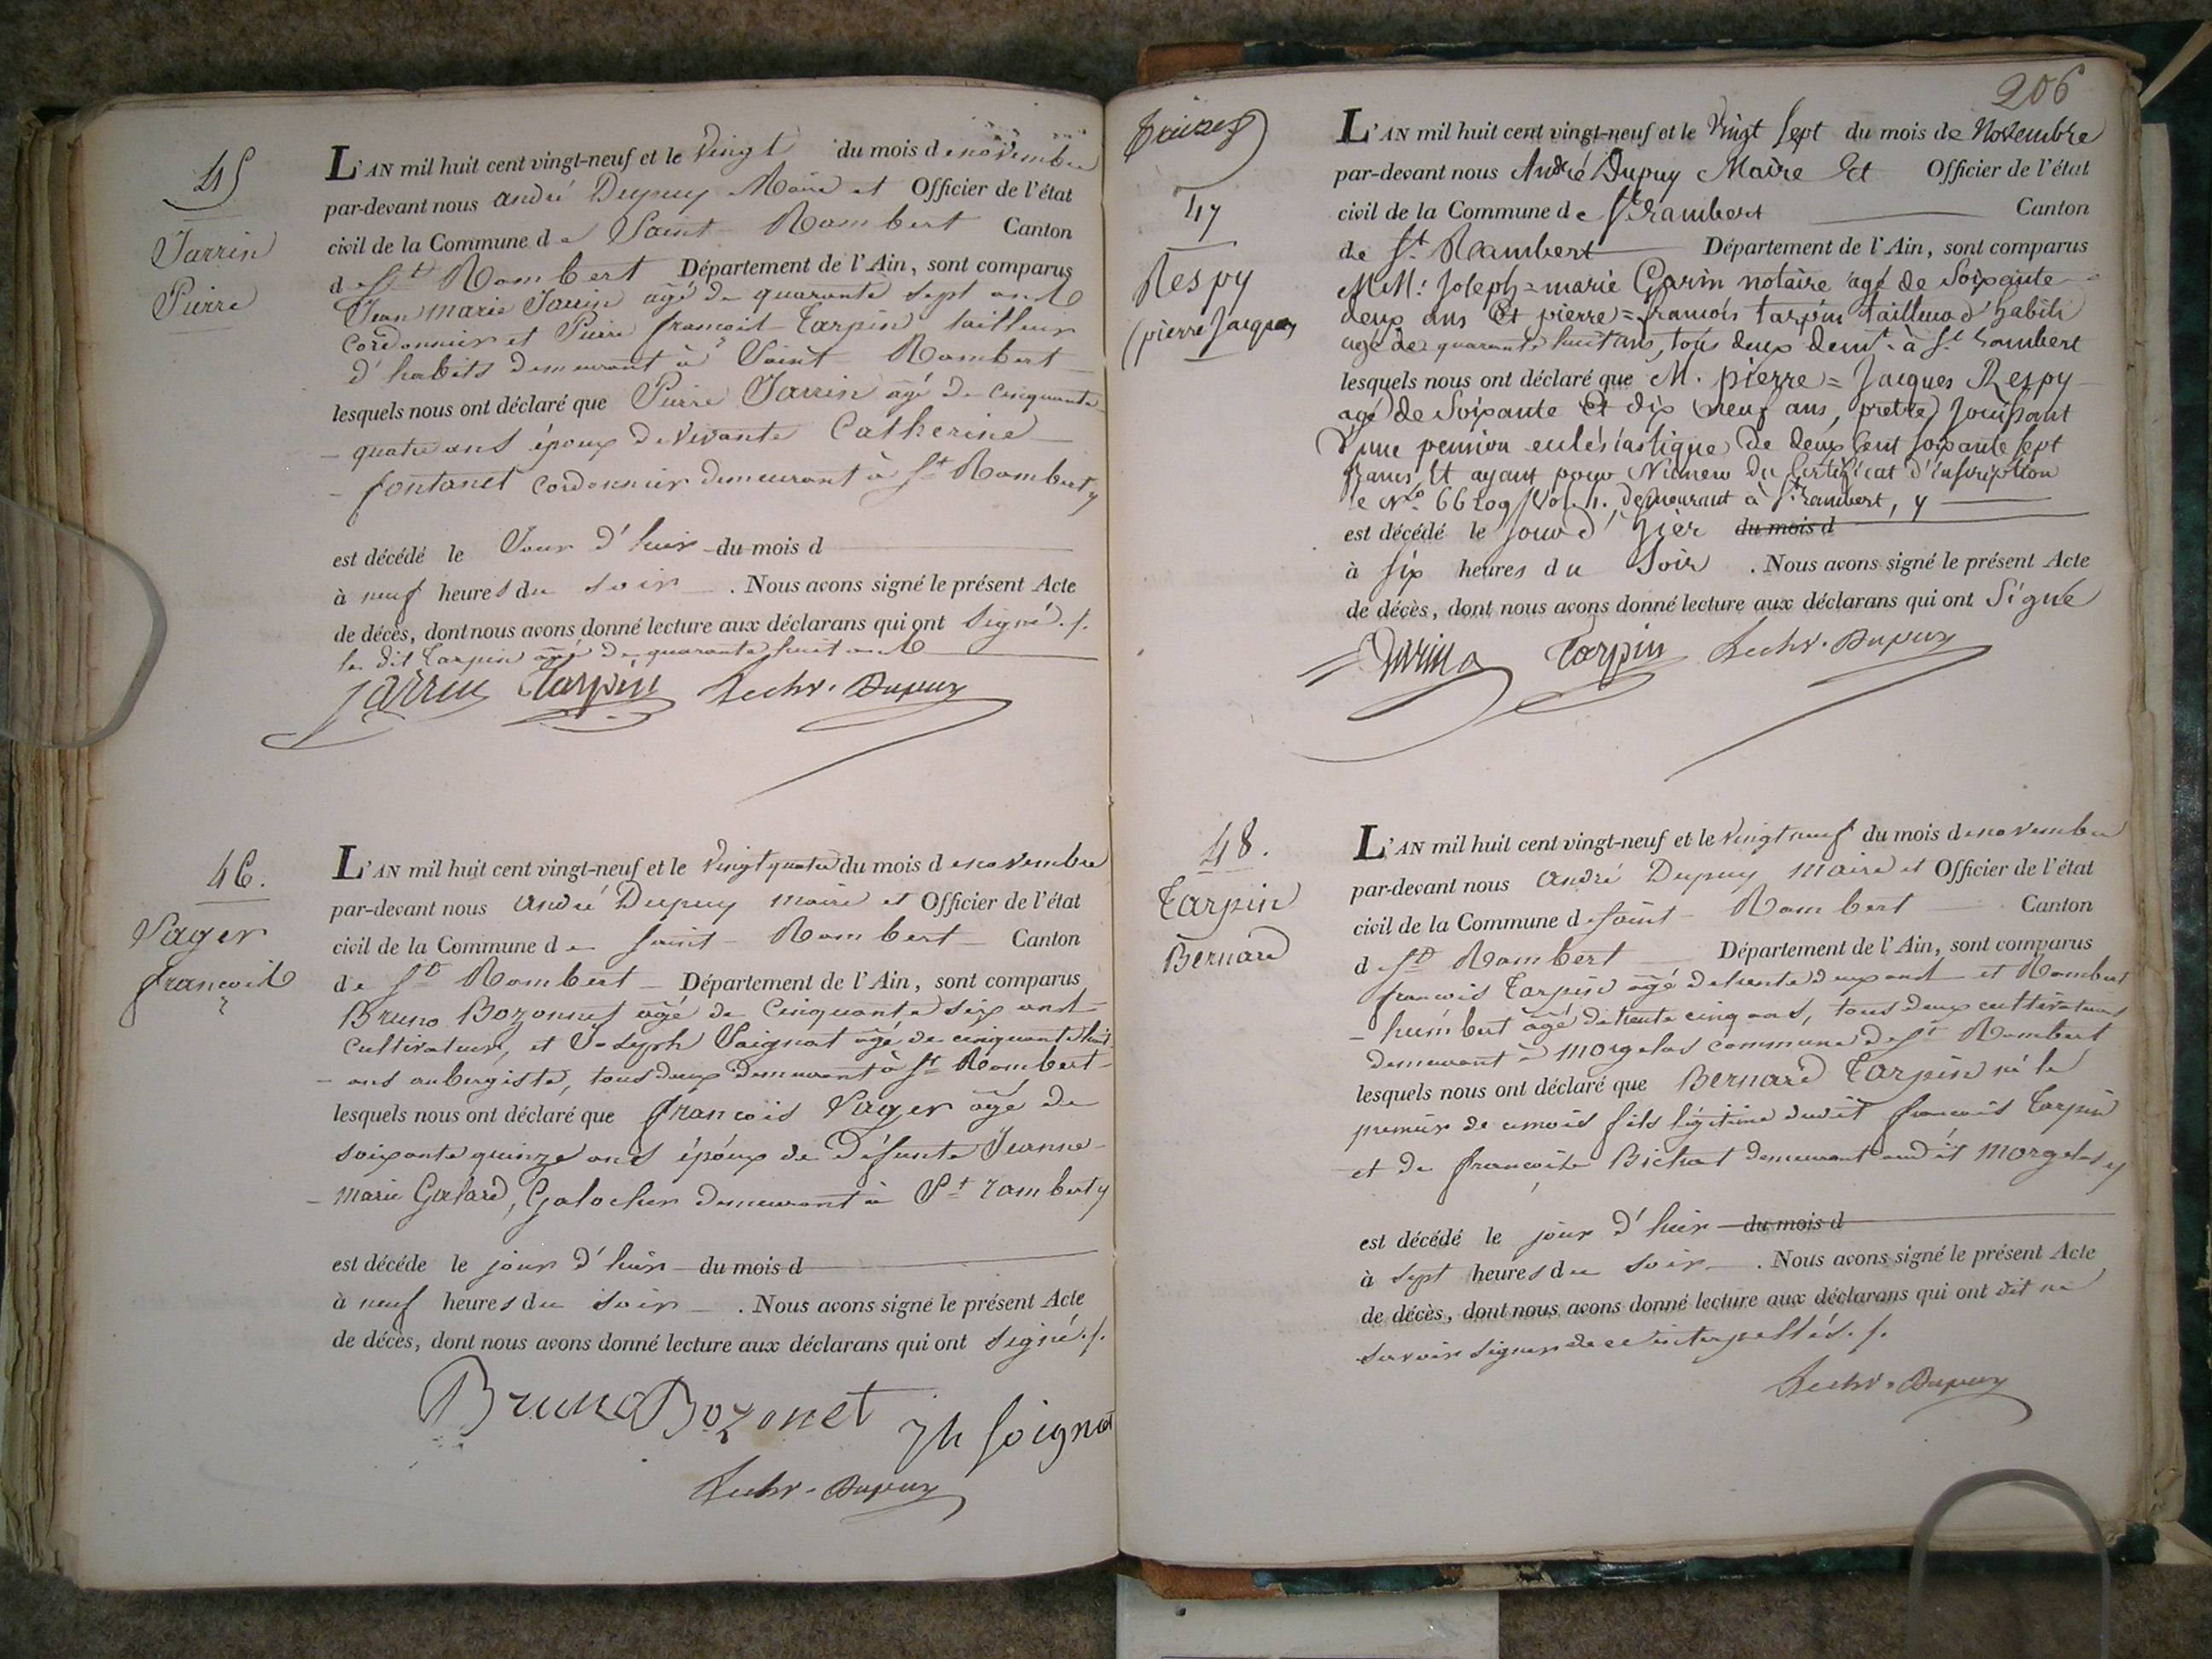 45
Jarrin
Pierre
L'AN mil huit cent vingt-neuf et le Vingt du mois de novembre
par-devant nous andré Dupuy Maire et Officier de l'état
civil de la Commune de Saint Rambert Canton
de St Rambert Département de l'Ain, sont comparus
Jean marie Jarrin âgé de quarante sept ans
cordonnier et Pierre françois Tarpin tailleur
d'habits demeurant à Saint Rambert
lesquels nous ont déclaré que Pierre Jarrin âgé de cinquante
quatre ans époux de vivante Catherine
fontanet cordonnier demeurant à St Rambert y
est décédé le Jour d'hier du mois d
à neuf heures du soir . Nous avons signé le présent Acte
de décès, dont nous avons donné lecture aux déclarans qui ont signé ./.
le dit Tarpin âgé de quarante huit ans
Jarrin Tarpin Dupuy
46.
Vager
françois
L'AN mil huit cent vingt-neuf et le Vingt quatre du mois de novembre
par-devant nous André Dupuy maire et Officier de l'état
civil de la Commune de Saint Rambert Canton
de St Rambert Département de l'Ain, sont comparus
Bruno Bozonnet âgé de cinquante six ans
cultivateur, et Joseph Soignat âgé de cinquante huit
ans aubergiste, tous deux demeurant à St Rambert
lesquels nous ont déclaré que françois Vager âgé de
soixante quinze ans époux de défunte Jeanne
marie Galard, Galocher demeurant à St rambert y
est décédé le jour d'hier du mois d
à neuf heures du soir . Nous avons signé le présent Acte
de décès, dont nous avons donné lecture aux déclarans qui ont signé ./.
Bruno Bozonet jh Soignat
Dupuy
206
47
Respy
(pierre Jacques
L'AN mil huit cent vingt-neuf et le Vingt sept du mois de Novembre
par-devant nous André Dupuy Maire Et Officier de l'état
civil de la Commune de St rambert Canton
de St Rambert Département de l'Ain, sont comparus
MM. Joseph=marie Garin notaire agé de Soixante
deux ans Et pierre=francois tarpin tailleur d'habits
agé de quarante huit ans, tous deux demt à St rambert
lesquels nous ont déclaré que M. pierre=Jacques Respy
agé de Soixante et dix neuf ans, pretre Jouissant
d'une pension eclésiastique de deux Cent soixante sept
francs Et ayant pour Numero du Certificat d'inscription
le No. 66209 Vol. 11. demeurant à St rambert, y
est décédé le Jour d'hier du mois d
à Six heures du Soir . Nous avons signé le présent Acte
de décès, dont nous avons donné lecture aux déclarans qui ont Signé
Garin Tarpin Dupuy
48.
Tarpin
Bernard
L'AN mil huit cent vingt-neuf et le vingt neuf du mois de novembre
par-devant nous André Dupuy maire et Officier de l'état
civil de la Commune de Saint Rambert Canton
de St Rambert Département de l'Ain, sont comparus
françois Tarpin âgé de trente deux ans et Rambert
humbert âgé de trente cinq ans, tous deux cultivateurs
demeurant à Morgelas commune de St Rambert
lesquels nous ont déclaré que Bernard Tarpin né le
premier de ce mois fils légitime dudit francois Tarpin
et de françoise Bichat demeurant audit Morgelas y
est décédé le jour d'hier du mois d
à sept heures du soir . Nous avons signé le présent Acte
de décès, dont nous avons donné lecture aux déclarans qui ont dit ne
savoir signer de ce interpellés ./.
Dupuy